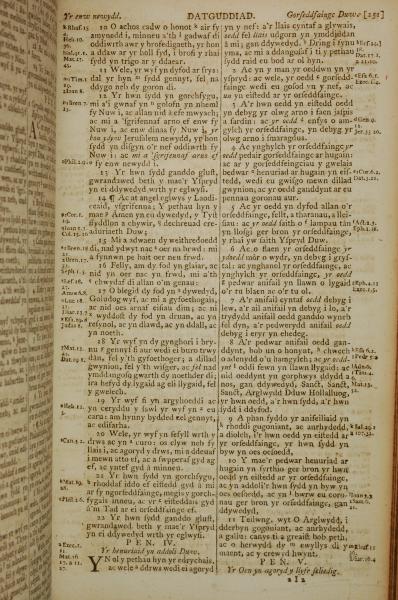 Yr enw newydd. DATGUDDIAD. Gorseddfaingc Duw. [251]
10 O achos cadw o honot air fy
amynedd i, minneu a'th gadwaf di
oddiwrth awr y brofedigaeth, yr hon
a ddaw ar yr holl fyd, i brofi y rhai
sydd yn trigo ar y ddaear.
11 Wele, yr wyf yn dyfod ar frys:
dal yr hyn sydd gennyt, fel na
ddygo neb dy goron di.
12 Yr hwn sydd yn gorchfygu,
mi a'i gwnaf yn golofn yn nheml
fy Nuw i, ac allan nid â efe mwyach;
ac mi a 'scrifennaf arno ef enw fy
Nuw i, ac enw dinas fy Nuw i,
Jerusalem newydd, yr hon
sydd yn disgyn o'r nef oddiwrth fy
Nuw i: ac mi a 'scrifennaf arno ef
fy enw newydd i.
13 Yr hwn sydd ganddo glust,
gwrandawed beth y mae'r Yspryd
yn ei ddywedyd wrth yr eglwysi.
14 ¶ Ac at angel eglwys y Laodi-
ceaid, 'scrifenna; Y pethau hyn y
mae Amen yn eu dywedyd, y Tyst
ffyddlon a chywir, dechreuad cre-
aduriaeth Duw;
15 Mi a adwaen dy weithredoedd
di, nad ydwyt nac oer na brwd: mi
a fynnwn pe bait oer neu frwd.
16 Felly, am dy fod yn glaiar, ac
nid yn oer nac yn frwd, mi a'th
chwydaf di allan o'm genau:
17 O blegid dy fod yn dywedyd,
Goludog wyf, ac mi a gyfoethogais,
ac nid oes arnaf eisiau dim; ac ni
wyddost dy fod yn druan, ac yn
resynol, ac yn dlawd, ac yn ddall, ac
yn noeth.
18 Yr wyf yn dy gynghori i bry-
nu gennyf fi aur wedi ei buro trwy
dân, fel y'th gyfoethoger; a dillad
gwynion, fel y'th wisger, ac fel nad
ymddangoso gwarth dy noethder di;
ira hefyd dy lygaid ag eli llygaid, fel
y gwelech.
19 Yr wyf fi yn argyhoeddi ac
yn ceryddu y sawl yr wyf yn eu
caru: am hynny bydded zel gennyt,
ac edifarha.
20 Wele, yr wyf yn sefyll wrth y
drws, ac yn curo: os clyw neb fy
llais i, ac agoryd y drws, mi a ddeuaf
i mewn atto ef, ac a swpperaf gyd ag
ef, ac yntef gyd â minneu.
21 Yr hwn sydd yn gorchfygu,
rhoddaf iddo ef eistedd gyd â mi
ar fy ngorseddfaingc, megis y gorch-
fygais inneu, ac yr eisteddais gyd
â'm Tad ar ei orseddfaingc ef.
22 Yr hwn sydd ganddo glust,
gwrandawed beth y mae'r Yspryd
yn ei ddywedyd wrth yr eglwysi.
PEN. IV.
Yr henuriaid yn addoli Duw.
YN ol y pethau hyn yr edrychais,
ac wele ddrws wedi ei agoryd
yn y nef: a'r llais cyntaf a glywais,
oedd fel llais udgorn yn ymddiddan
â mi; gan ddywedyd, Dring i fynu
yma, ac mi a ddangosaf i ti y pethau
sydd raid eu bod ar ol hyn.
2 Ac yn y man yr oeddwn yn yr
yspryd: ac wele, yr oedd gorsedd-
faingc wedi ei gosod yn y nef, ac
un yn eistedd ar yr orseddfaingc.
3 A'r hwn oedd yn eistedd oedd
yn debyg yr olwg arno i faen jaspis
a sardin: ac yr oedd enfys o am-
gylch yr orseddfaingc, yn debyg yr
olwg arno i smaragdus.
4 Ac ynghylch yr orseddfaingc yr
oedd pedair gorseddfaingc ar hugain:
ac ar y gorseddfeingciau y gwelais
bedwar henuriad ar hugain yn ei-
stedd, wedi eu gwisgo mewn dillad
gwynion; ac yr oedd ganddynt ar eu
pennau goronau aur.
5 Ac yr oedd yn dyfod allan o'r
orseddfaingc, fellt, a tharanau, a llei-
siau: ac yr oedd saith o lampau tân
yn llosgi ger bron yr orseddfaingc,
y rhai yw saith Yspryd Duw.
6 Ac o flaen yr orseddfaingc yr
ydoedd môr o wydr, yn debyg i grys-
tal: ac ynghanol yr orseddfaingc, ac
ynghylch yr orseddfaingc, yr oedd
pedwar anifail yn llawn o lygaid
o'r tu blaen ac o'r tu ol.
7 A'r anifail cyntaf oedd debyg i
lew, a'r ail anifail yn debyg i lo, a'r
trydydd anifail oedd ganddo wyneb
fel dyn, a'r pedwerydd anifail oedd
debyg i eryr yn ehedeg.
8 A'r pedwar anifail oedd gan-
ddynt, bob un o honynt, chwech
o adenydd o'u hamgylch; ac yr oedd-
ynt oddi fewn yn llawn llygaid: ac
nid oeddynt yn gorphwys ddydd a
nos, gan ddywedyd, Sanct, Sanct,
Sanct, Arglwydd Dduw Hollalluog,
yr hwn oedd, a'r hwn sydd, a'r hwn
sydd i ddyfod.
9 A phan fyddo yr anifeiliaid yn
rhoddi gogoniant, ac anrhydedd,
a diolch, i'r hwn oedd yn eistedd ar
yr orseddfaingc, yr hwn sydd yn
byw yn oes oesoedd,
10 Y mae'r pedwar henuriad ar
hugain yn syrthio ger bron yr hwn
oedd yn eistedd ar yr orseddfaingc,
ac yn addoli'r hwn sydd yn byw yn
oes oesoedd, ac yn bwrw eu coro-
nau ger bron yr orseddfaingc, gan
ddywedyd,
11 Teilwng, wyt O Arglwydd, i
dderbyn gogoniant, ac anrhydedd,
a gallu: canys ti a greaist bob peth,
ac o herwydd dy ewyllys di y
maent, ac y crewyd hwynt.
PEN. V.
Yr Oen yn agoryd y llyfr seliedig.